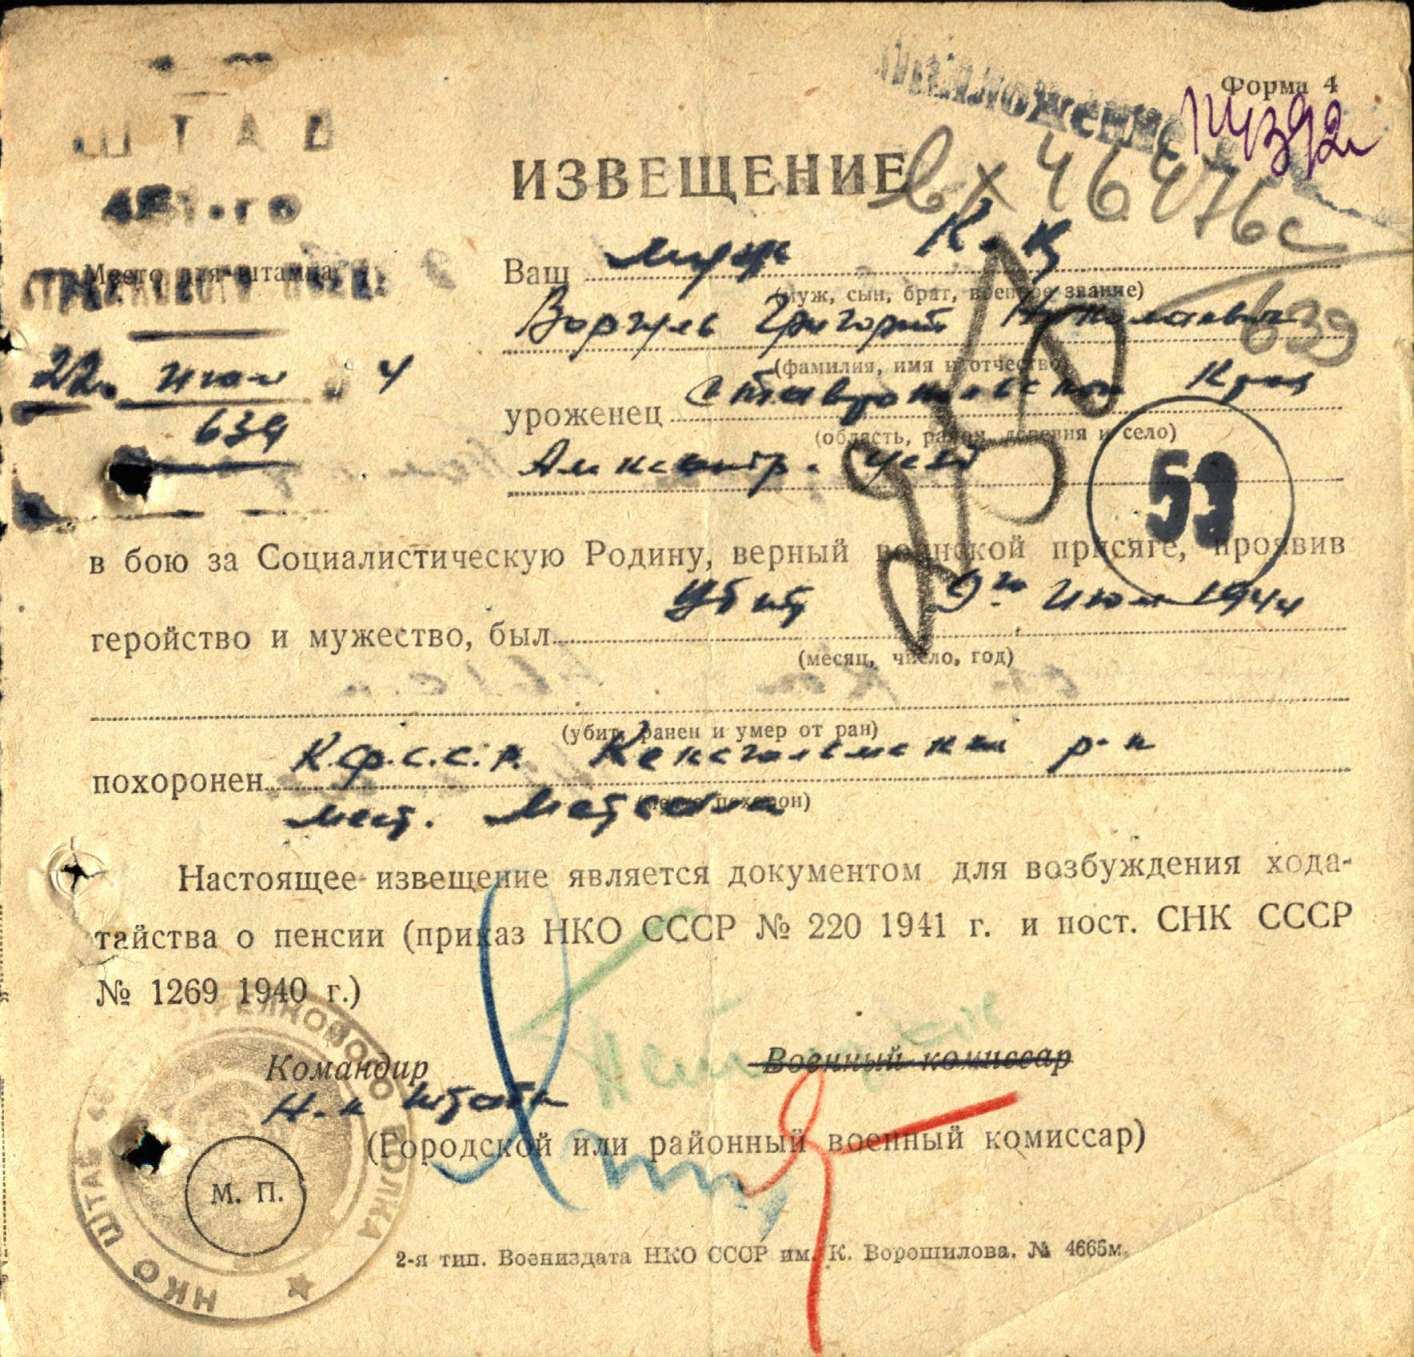 Форма 4
ШТАБ
ИЗВЕЩЕНИЕ
вх 46476с
Место для штампа
Ваш муж
(муж, сын, брат, военное звание)
Григорий Николаевич
639
(фамилия, имя и отчество)
22 июля 4
уроженец Ставропольский Край
(область, район, деревня и село)
639
53
в бою за Социалистическую Родину, верный воинской присяге, проявив
геройство и мужество, был убит 9го июля 1944
(месяц, число, год)
(убит, ранен и умер от ран)
похоронен К.Ф.С.С.Р. Кексгольмский р-н
(место похорон)
мест.
Настоящее извещение является документом для возбуждения хода-
тайства о пенсии (приказ НКО СССР № 220 1941 г. и пост. СНК СССР
№ 1269 1940 г.)
Командир Военный комиссар
Н-к штаба
(Городской или районный военный комиссар)
М. П.
НКО ШТАБ СТРЕЛКОВОГО ПОЛКА
2-я тип. Воениздата НКО СССР им. К. Ворошилова. № 4665м.